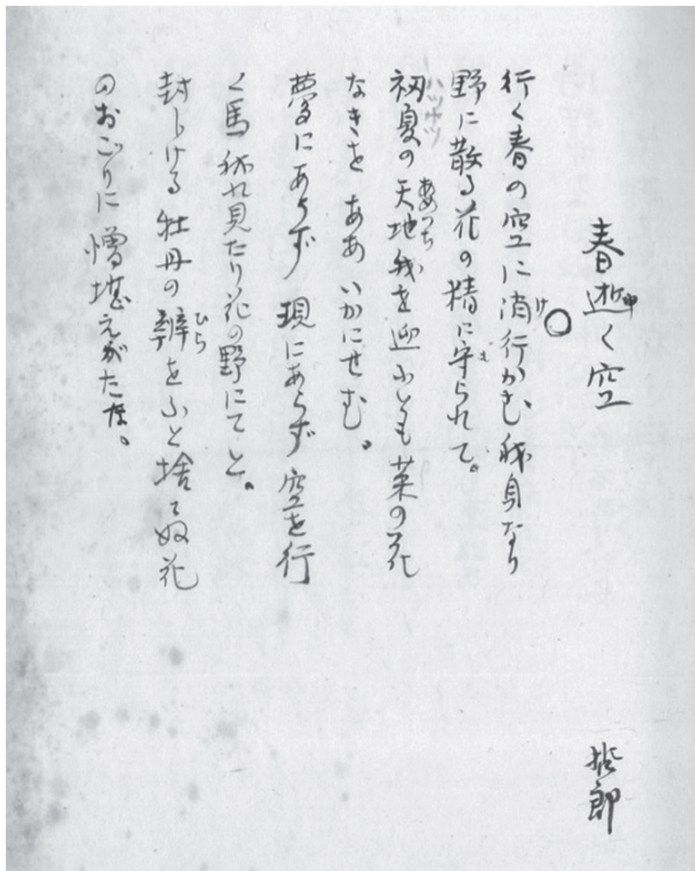 春逝く空
哲郎
行く春の空に消行かむ我身なり
野に散る花の精に守られて。
初夏の天地我を迎ふとも菜の花
なきをああいかにせむ。
夢にあらず現にあらず空を行
く馬我れ見たり花の野にてと。
封しける牡丹の辨をふと捨てぬ花
のおごりに憎堪えがたな。